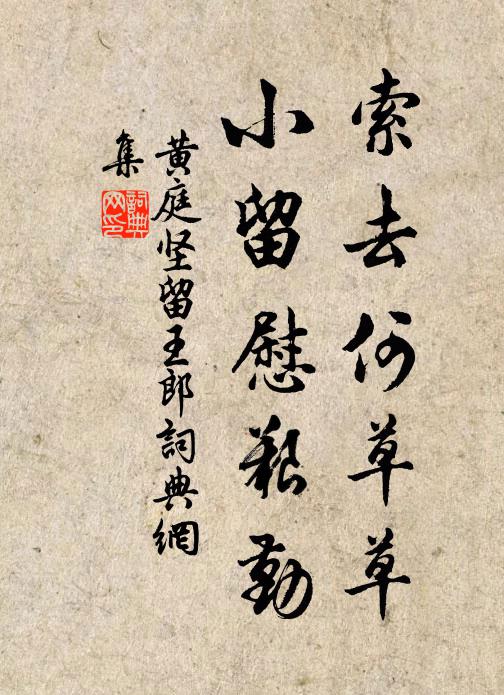 索去何草草
小留慰艱勤
黄庭坚留王郎詞典網
集
詞典
网印